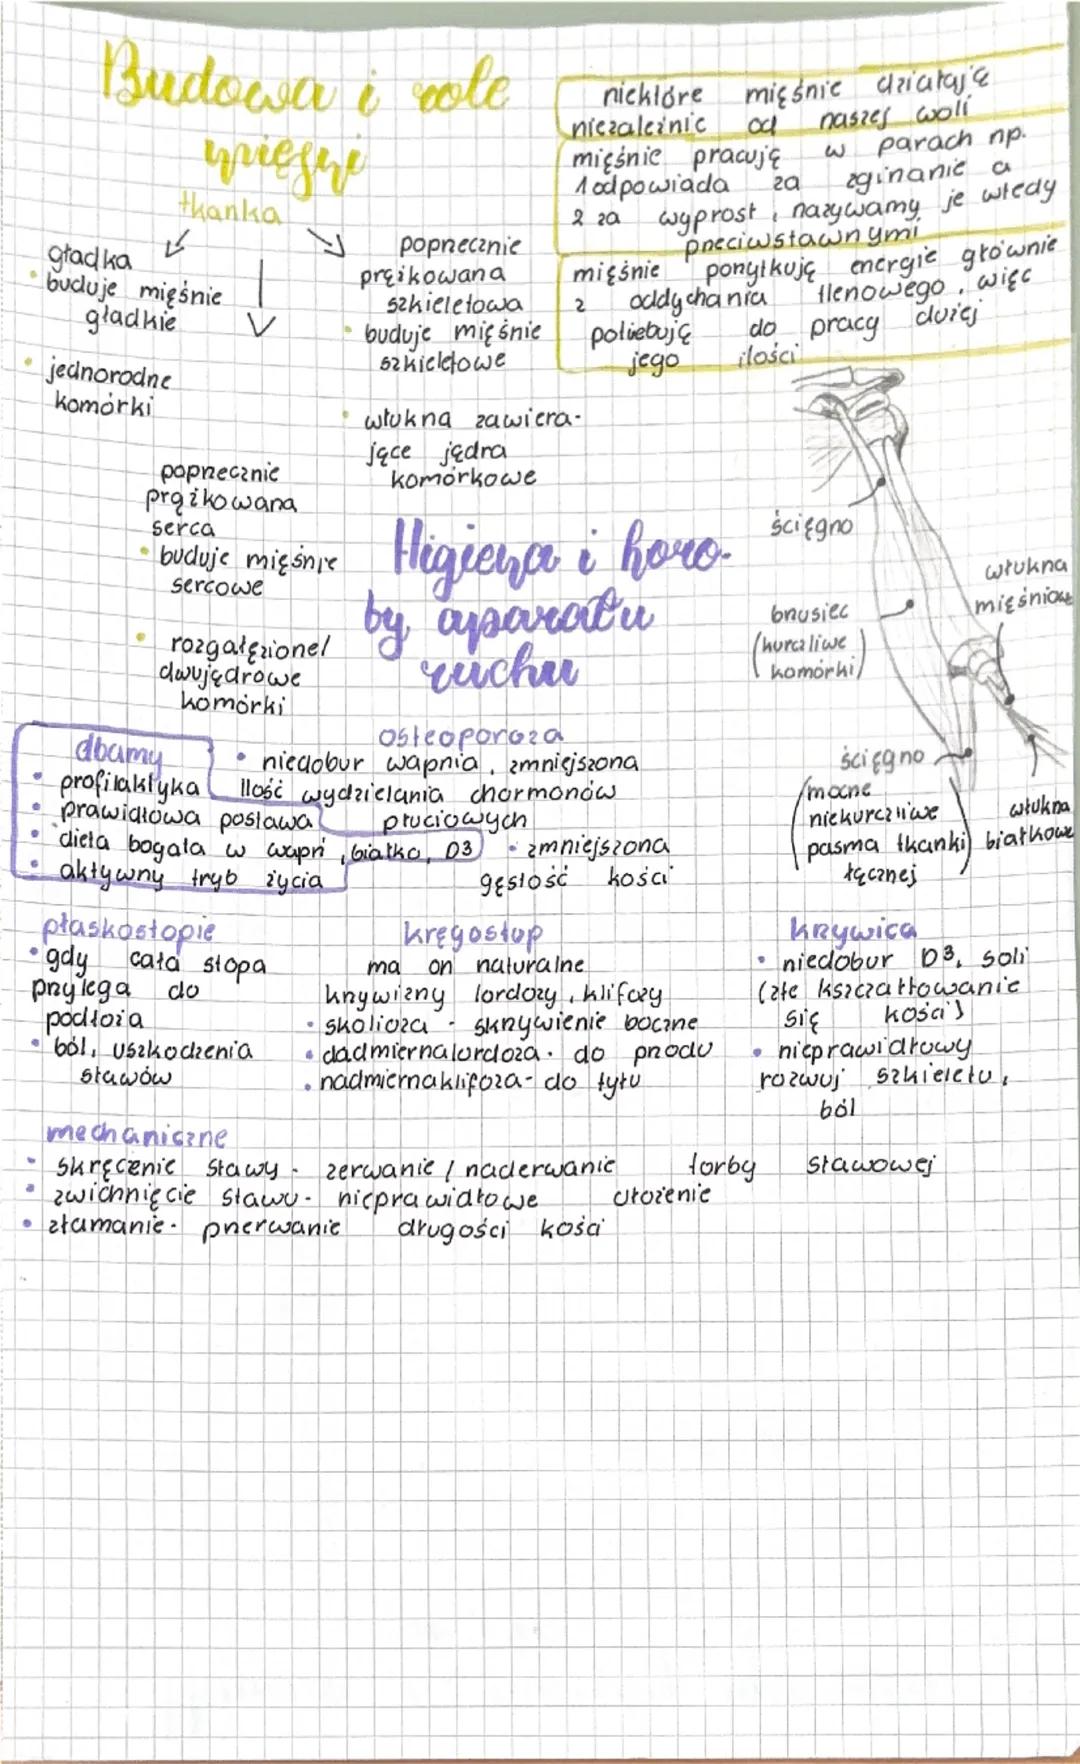 Budowa i role
mięśni
tkanka
niektóre mięśnie działają
niezależnie od naszej woli
mięśnie pracują w parach np.
1 odpowiada za zginanie a
2 za wyprost, nazywamy je wtedy
przeciwstawnymi
mięśnie pożytkują energię głównie
z oddychania tlenowego, więc
potrzebują do pracy dużej
jego ilości
gładka
• buduje mięśnie
gładkie
• jednorodne
komórki
poprzecznie
prążkowana
szkieletowa
• buduje mięśnie
szkieletowe
• włukna zawiera-
jące jądra
komórkowe
poprzecznie
prążkowana
serca
• buduje mięśnie
sercowe
• rozgałęzione/
dwujędrowe
komórki
ścięgno
włukna
mięśniowe
brzusiec
(kurczliwe
komórki)
ścięgno
(mocne
niekurczliwe
pasma tkanki
łącznej)
włukna
białkowe
Higiena i horo-
by aparatu
ruchu
dbamy
• profilaktyka
• prawidłowa postawa
• dieta bogata w wapń, białko, D3
• aktywny tryb życia
osteoporoza
• niedobur wapnia, zmniejszona
Ilość wydzielania chormonów
płuciowych
• zmniejszona
gęstość kości
płaskostopie
• gdy cała stopa
przylega do
podłoża
• ból, uszkodzenia
stawów
kręgosłup
ma on naturalne
krzywizny lordozy, klifozy
• skolioza - skrzywienie boczne
• dadmierna lordoza - do przodu
• nadmierna klifoza - do tyłu
krzywica
• niedobur D3, soli
(złe kszczałtowanie
się kości)
• nieprawidłowy
rozwuj szkieletu,
ból
mechaniczne
• skręcenie stawy - zerwanie / naderwanie torby stawowej
• zwichnięcie stawu - nieprawidłowe ułożenie
• złamanie - przerwanie długości kości